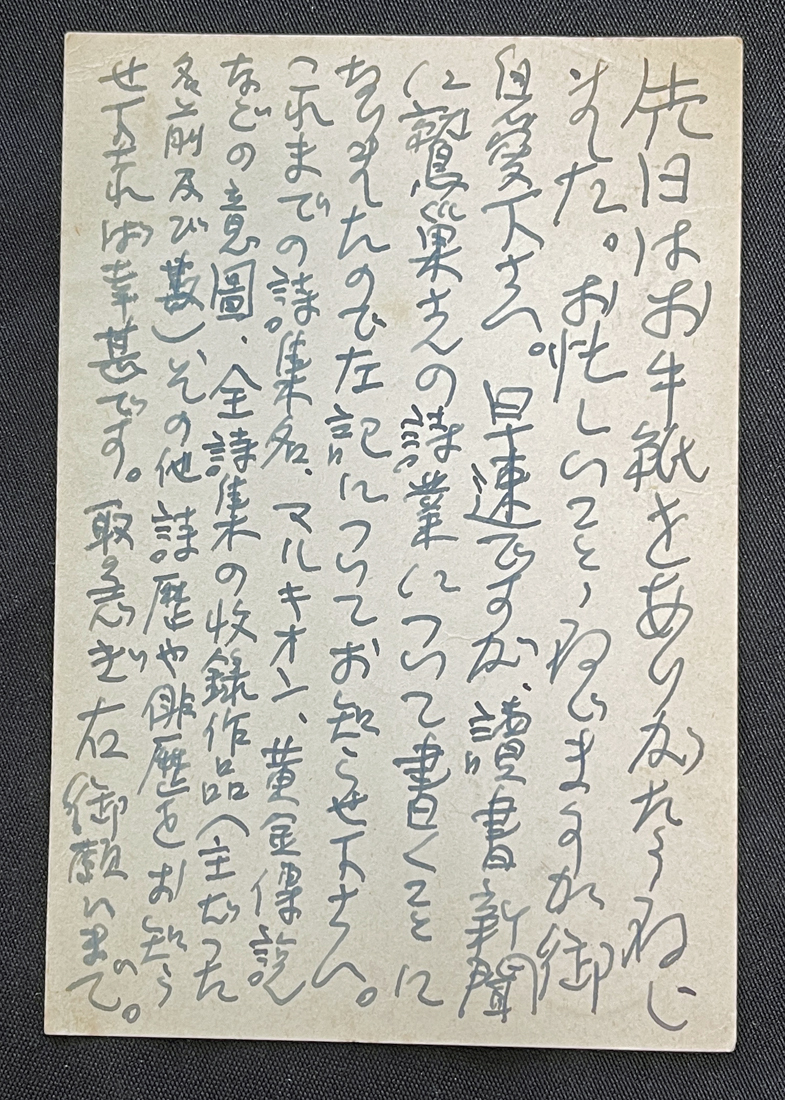 先日はお手紙をありがたう存じ
ました。お忙しいことゝ存じますが御
自愛下さい。早速ですが、讀書新聞
に鷲巣さんの詩業について書くことに
なりましたので左記についてお知らせ下さい。
これまでの詩集名、マルキオン、黄金傳説
などの意圖、全詩集の收録作品(主だった
名前及び数)、その他詩歴や俳歴をお知ら
せ下されば幸甚です。取急ぎ右御願いまで。